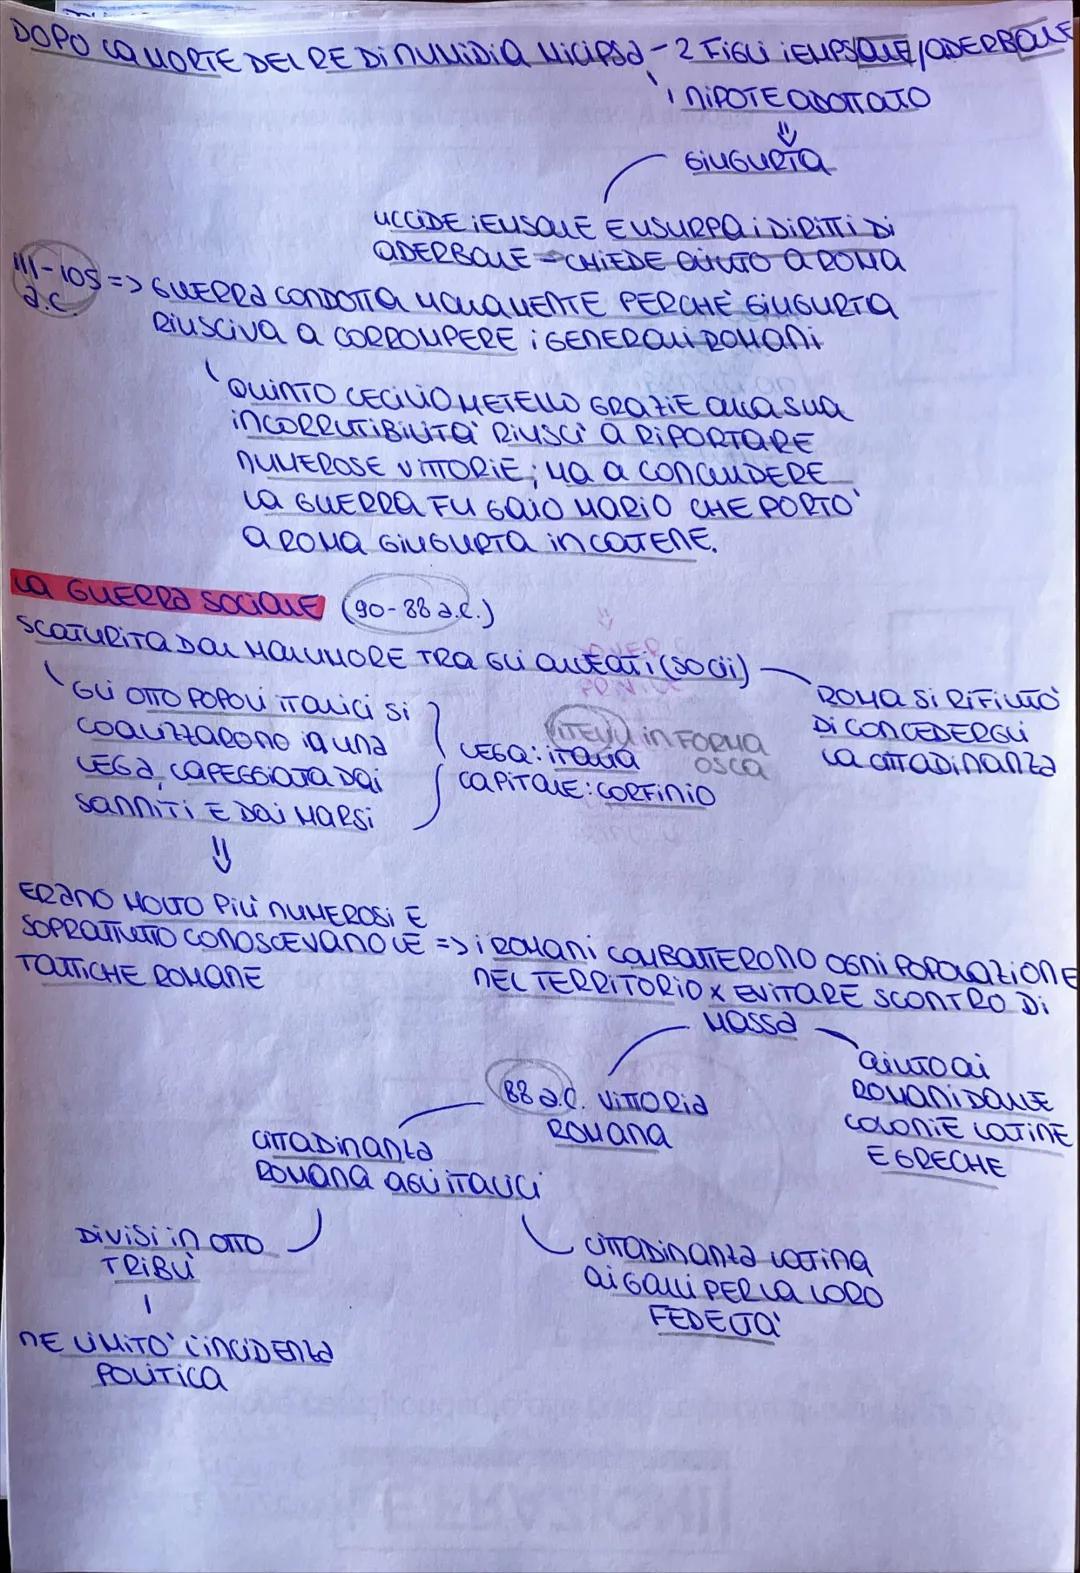 DOPO LA MORTE DEL RE DI NUMIDIA MICIPSA - 2 FIGLI IEMPSALE/ADERBALE
1 NIPOTE ADOTTATO
⇓
GIUGURTA
UCCIDE IEMSALE E USURPA I DIRITTI DI
ADERBALE - CHIEDE AIUTO A ROMA
111-105 a.C. => GUERRA CONDOTTA MALAMENTE PERCHÈ GIUGURTA
RIUSCIVA A CORROMPERE I GENERALI ROMANI
QUINTO CECILIO METELLO GRAZIE ALLA SUA
INCORRUTIBILITA' RIUSCI' A RIPORTARE
NUMEROSE VITTORIE; MA A CONCLUDERE
LA GUERRA FU GAIO MARIO CHE PORTO'
A ROMA GIUGURTA IN CATENE.
LA GUERRA SOCIALE (90-88 a.C.)
SCATURITA DAL MALUMORE TRA GLI ALLEATI (SOCII)
ROMA SI RIFIUTO'
DI CONCEDERGLI
LA CITTADINANZA
GLI OTTO POPOLI ITALICI SI
COALIZZARONO IN UNA
LEGA, CAPEGGIATA DAI
SANNITI E DAI MARSI
VITELIU IN FORMA
OSCA
LEGA: ITALIA
CAPITALE: CORFINIO
⇓
ERANO MOLTO PIÙ NUMEROSI E
SOPRATTUTTO CONOSCEVANO LE
TATTICHE ROMANE
=> I ROMANI COMBATTERONO OGNI POPOLAZIONE
NEL TERRITORIO X EVITARE SCONTRO DI
MASSA
AIUTO AI
ROMANI DALLE
COLONIE LATINE
E GRECHE
88 a.C. VITTORIA
ROMANA
CITTADINANZA
ROMANA AGLI ITALICI
DIVISI IN OTTO
TRIBÙ
NE LIMITO' L'INCIDENZA
POLITICA
CITTADINANZA LATINA
AI GALLI PER LA LORO
FEDELTA'